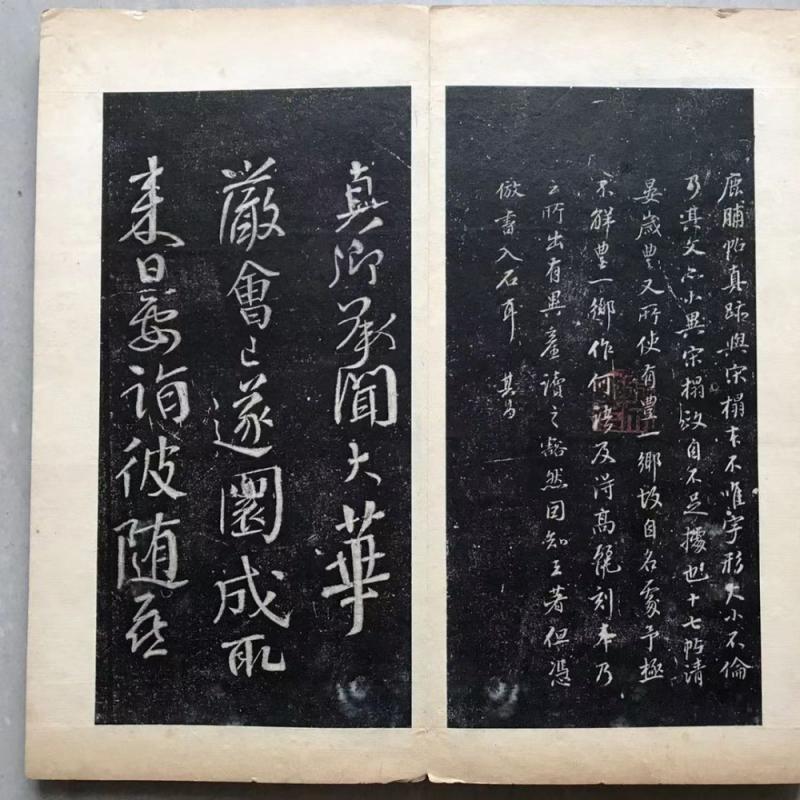 鹿脯帖真跡與宋榻本不唯字形大小不倫
乃其文亦小異宋榻故自不足據也十七帖清
晏歲豊又所使有豊一鄉故自名處予極
不解豊一鄉作何語及得高麗刻本乃
云所出有異產讀之豁然因知王著但憑
倣書入石耳 其昌
真卿承聞大華
嚴會已遂圓成取
來日要詣彼随喜